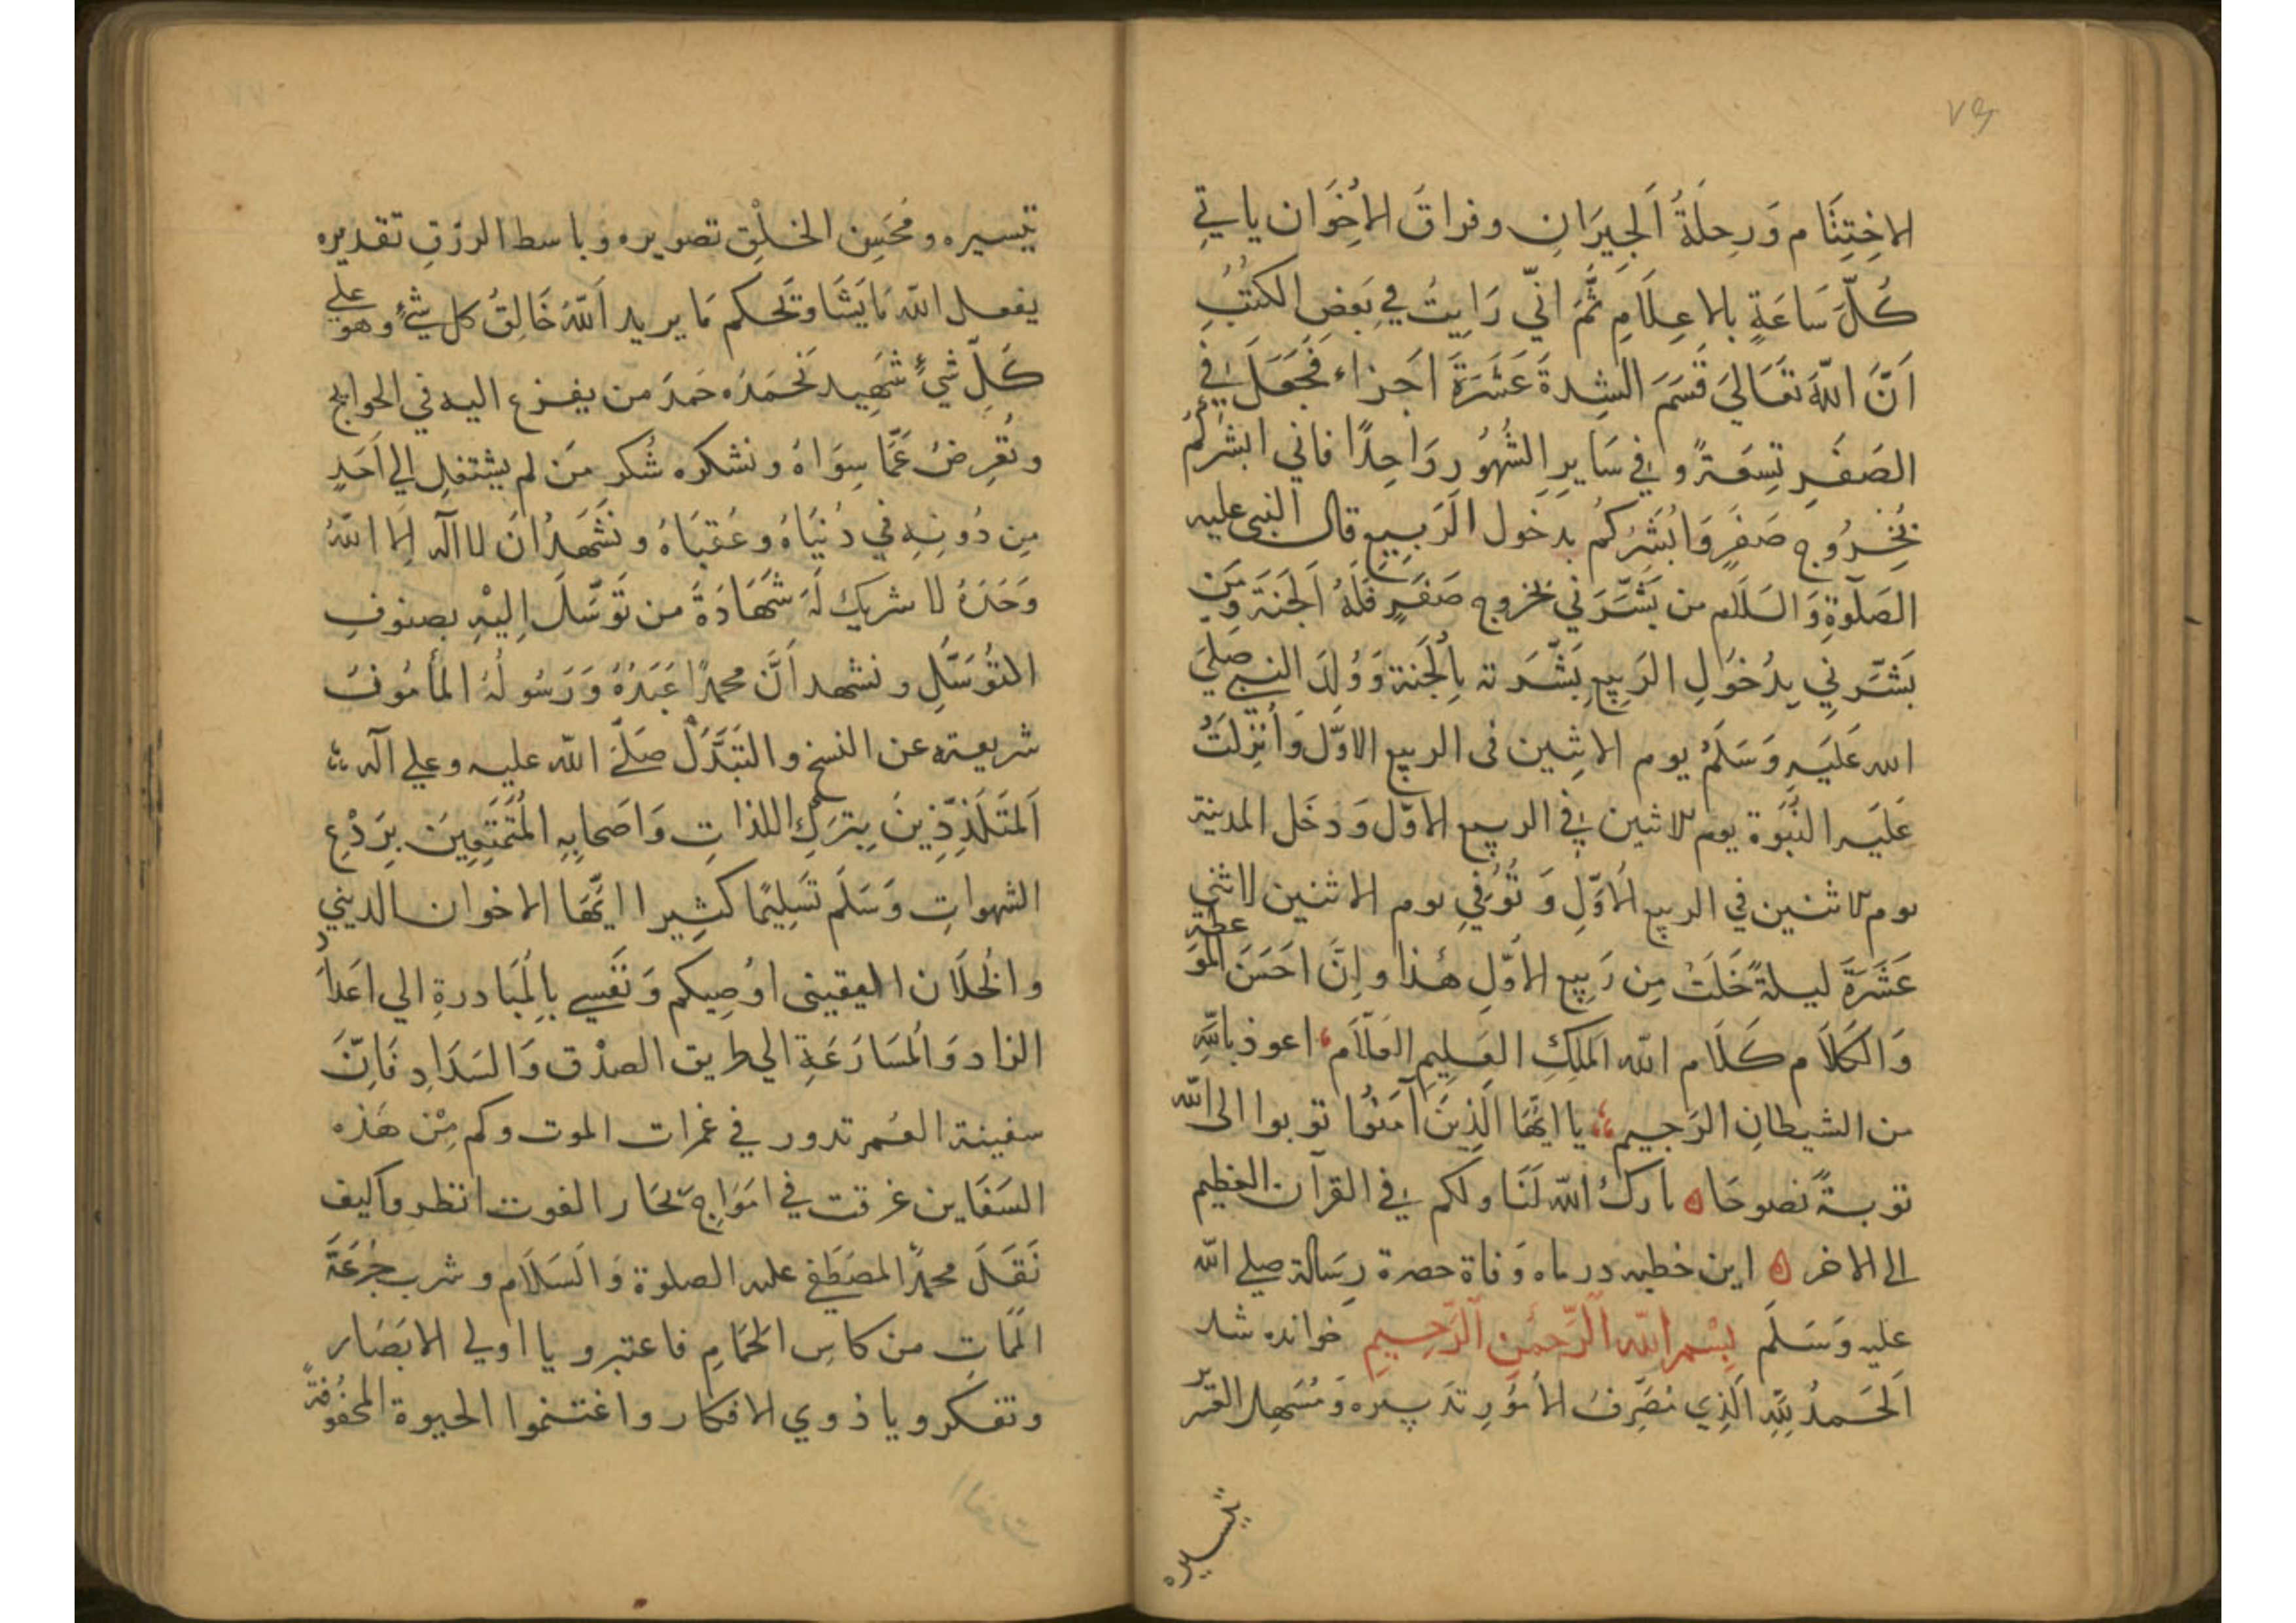 ٧٦
الاِختِتَام وَرِحلَةُ الجِيرَانِ وفراقَ الاِخوَان ياتِي
كُلَّ سَاعَةٍ بالاعِلَامِ ثُمَّ انّي رَايتُ في بَعضِ الكُتُبِ
اَنَّ اللّٰهَ تَعَالىَ قَسَمَ الشِدةَ عَشَرَةَ اَجزاء فَجَعَلَ في
الصَفَرِ تِسعَةً و في سَايرِ الشُهُورِ وَاحِدًا فاني ابشركُم
بخُرُوجِ صَفَرٍ وَابُشِرُكُم بدخول الرَبِيعِ قال النبى عليه
الصَلٰوةِ وَالسَلَام من بَشَّرَنِي بخروج صَفَرٍ فَلَهُ الجَنة وَمَن
بَشَّرنِي بِدُخُولِ الرَبيعِ بَشَّرَته بِالجَنة وَوُلِدَ النبي صَلىَ
الله عَلَيهِ وَسَلَم يوم الاثِنين فى الربيع الاوّل وَاُنزِلَتُ
عَلَيه النُبَوة يوم الاثنين في الربيع الاوّل وَدَخَل المدينة
يوم الاثنين في الربيع الاَوّلِ وَ تُوُفي يوم الاثنين لاثني
عَشَرَةَ ليلةً خَلَتُ مِن رَبِيع الاَوّلِ هٰذا واِنَّ اَحسَنَ المَوَعظة
وَالكَلَام كَلَام اللّٰه المَلِكِ العَلِيمِ العَلّام اعوذ باللّٰهِ
من الشيطانِ الرَجيم يا ايُّهَا الَذِينَ آمَنُوا توبوا الى اللّٰه
توبةً نصوحَا ه بارك اللّٰه لَنَا ولكم في القرآن العظيم
الى الاخر ه اين خطبه در ماه وَفاة حضرة رِسَالة صلى اللّٰه
عليه وَسَلَم بِسْمِ اللّٰه الرَّحمٰنِ الرَّحِيمِ خوانده شد
اَلحَمدُ لِلّٰهِ الَذِي مُصَرِفُ الاُمُورِ تدبيره وَمُسَهِل العَسِر
تيسيره
تيسيره ومُحَسِن الخَلْقِ تصويره وَباسط الرزقِ تقديره
يفعل اللّٰه مَا يَشَا وَيَحكم مَا يريد اَللّٰهُ خَالِقُ كل شيءٍ وهو على
كَلِّ شيءٍ شَهِيد نَحمَدُه حَمدَ من يفزع اليه في الحوايج
ونُعرِضُ عَمَّا سِوَاهُ ونشكره شُكر مَن لم يشتغل الي اَحَدٍ
مِن دُونِهِ في دُنيَاهُ وعُقبَاهُ ونَشهَدُ اَن لا اله اِلا اللّٰهُ
وَحَدَهُ لا شريك لَهُ شَهَادَةً من تَوَسَّلَ اِليْهِ بصنوفِ
المتُوَسَّلِ ونشهد اَنَّ محمدًا عَبَدُهُ وَرَسُولُهُ المأمُونُ
شريعته عن النسخ والتَبَدَّل صَلىَّ اللّٰه عليه وعلي آله
اَلمُتَلَذِذِينَ بِترَكِ اللذاتِ وَاَصحابِهِ المُتَمَتِعِينَ بِرَدْعِ
الشهواتِ وَسَلَم تَسلِيمًا كثِيرا ايُّهَا الاخوان الديني
والخُلّان اليقيني اُوصِيكم وَنَفسِي بِالمُبَادرةِ الي اعَدادِ
الزاد وَالمُسَارَعَةِ الي طريق الصِدْق وَالسَدَادِ فَاِنَّ
سفينة العُمر تدور في غمرات الموت وكم مِنْ هَذه
السَفَاين غرقت في امَوَاج بحَار الفوت انظروا كيف
نَقَلَ محمدُ المصَطَفي عليه الصلوة وَالسَلَام وشرب جُرعَةَ
المَمَاتِ من كاسِ الحَمَامِ فاعتبرو يا اولي الابَصَار
وتفكرو يا ذوي الافكار واغتنموا الحيوة المحفُوفةً